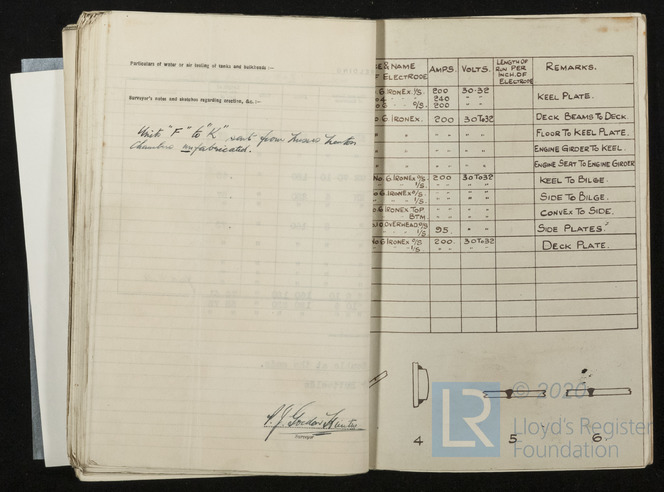 Particulars of water or air testing of tanks and bulkheads :—
Surveyor's notes and sketches regarding erection, &c. :—
Units "F" to "K" sent from Messrs Newton
Chambers unfabricated.
Gordon Hunter
Surveyor
& NAME ELECTRODE AMPS. VOLTS. LENGTH OF RUN PER INCH OF ELECTRODE REMARKS.
G. IRONEX. I/S. 200 30-32 KEEL PLATE.
240 " "
O/S. 200 " "
G. IRONEX. 200 30 TO 32 DECK BEAMS TO DECK.
" " " FLOOR TO KEEL PLATE.
" " " ENGINE GIRDER TO KEEL.
" " " ENGINE SEAT TO ENGINE GIRDER
No. G. IRONEX O/S 200 30 TO 32 KEEL TO BILGE.
" I/S. " " "
G. IRONEX O/S. " " " SIDE TO BILGE.
" I/S. " " "
G. IRONEX TOP " " " CONVEX TO SIDE.
BTM. " " "
OVERHEAD O/S 95. " " SIDE PLATES.
" I/S
No G. IRONEX O/S 200. 30 TO 32 DECK PLATE.
" I/S. " " "
4 5 6.
© 2020
LR Lloyd's Register
Foundation